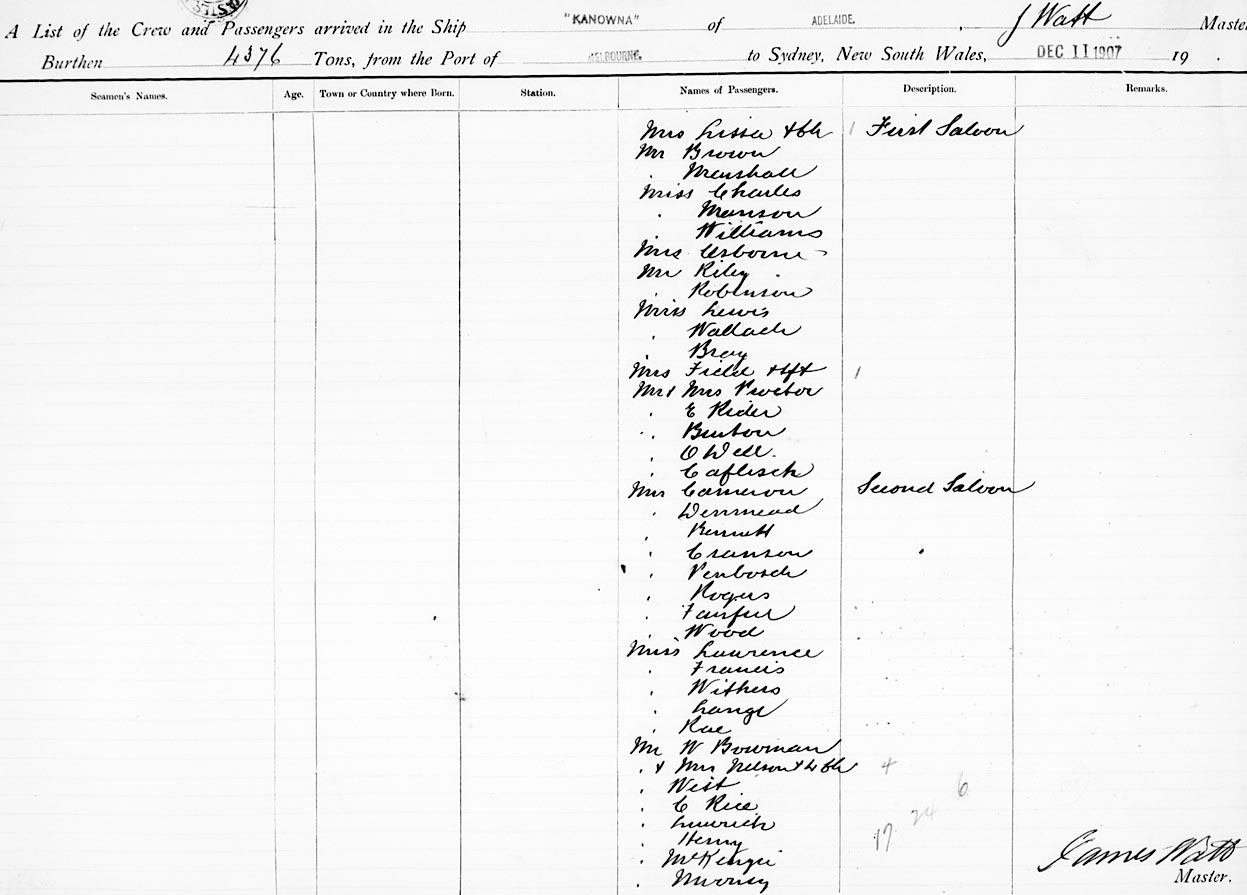 A List of the Crew and Passengers arrived in the Ship "KANOWNA" of ADELAIDE. , J Watt Master
Burthen 4376 Tons, from the Port of MELBOURNE. to Sydney, New South Wales, DEC 11 1907 19 .
Seamen's Names. Age. Town or Country where Born. Station. Names of Passengers. Description. Remarks.
Mrs Lissa + 6h 1 First Saloon
Mr Brown
. Marshall
Miss Charles
. Manson
. Williams
Mrs Osborne
Mr Riley
. Robinson
Miss Lewis
. Wallach
. Bray
Mrs Field 1
Mr & Mrs Proctor
. E Rider
. Benton
. O Dell.
. Caflisch
Mrs Cameron Second Saloon
. Bennett
. Cranson
. Penbosch
. Rogers
. Wood
Miss Lawrence
. Francis
. Withers
. Lange
. Rae
Mr W Bowman
. & Mrs Nelson + 4 Ch 4
. West 6
. C Rice 24
. 17
. Henry
. McKenzie James Watt
. Master.